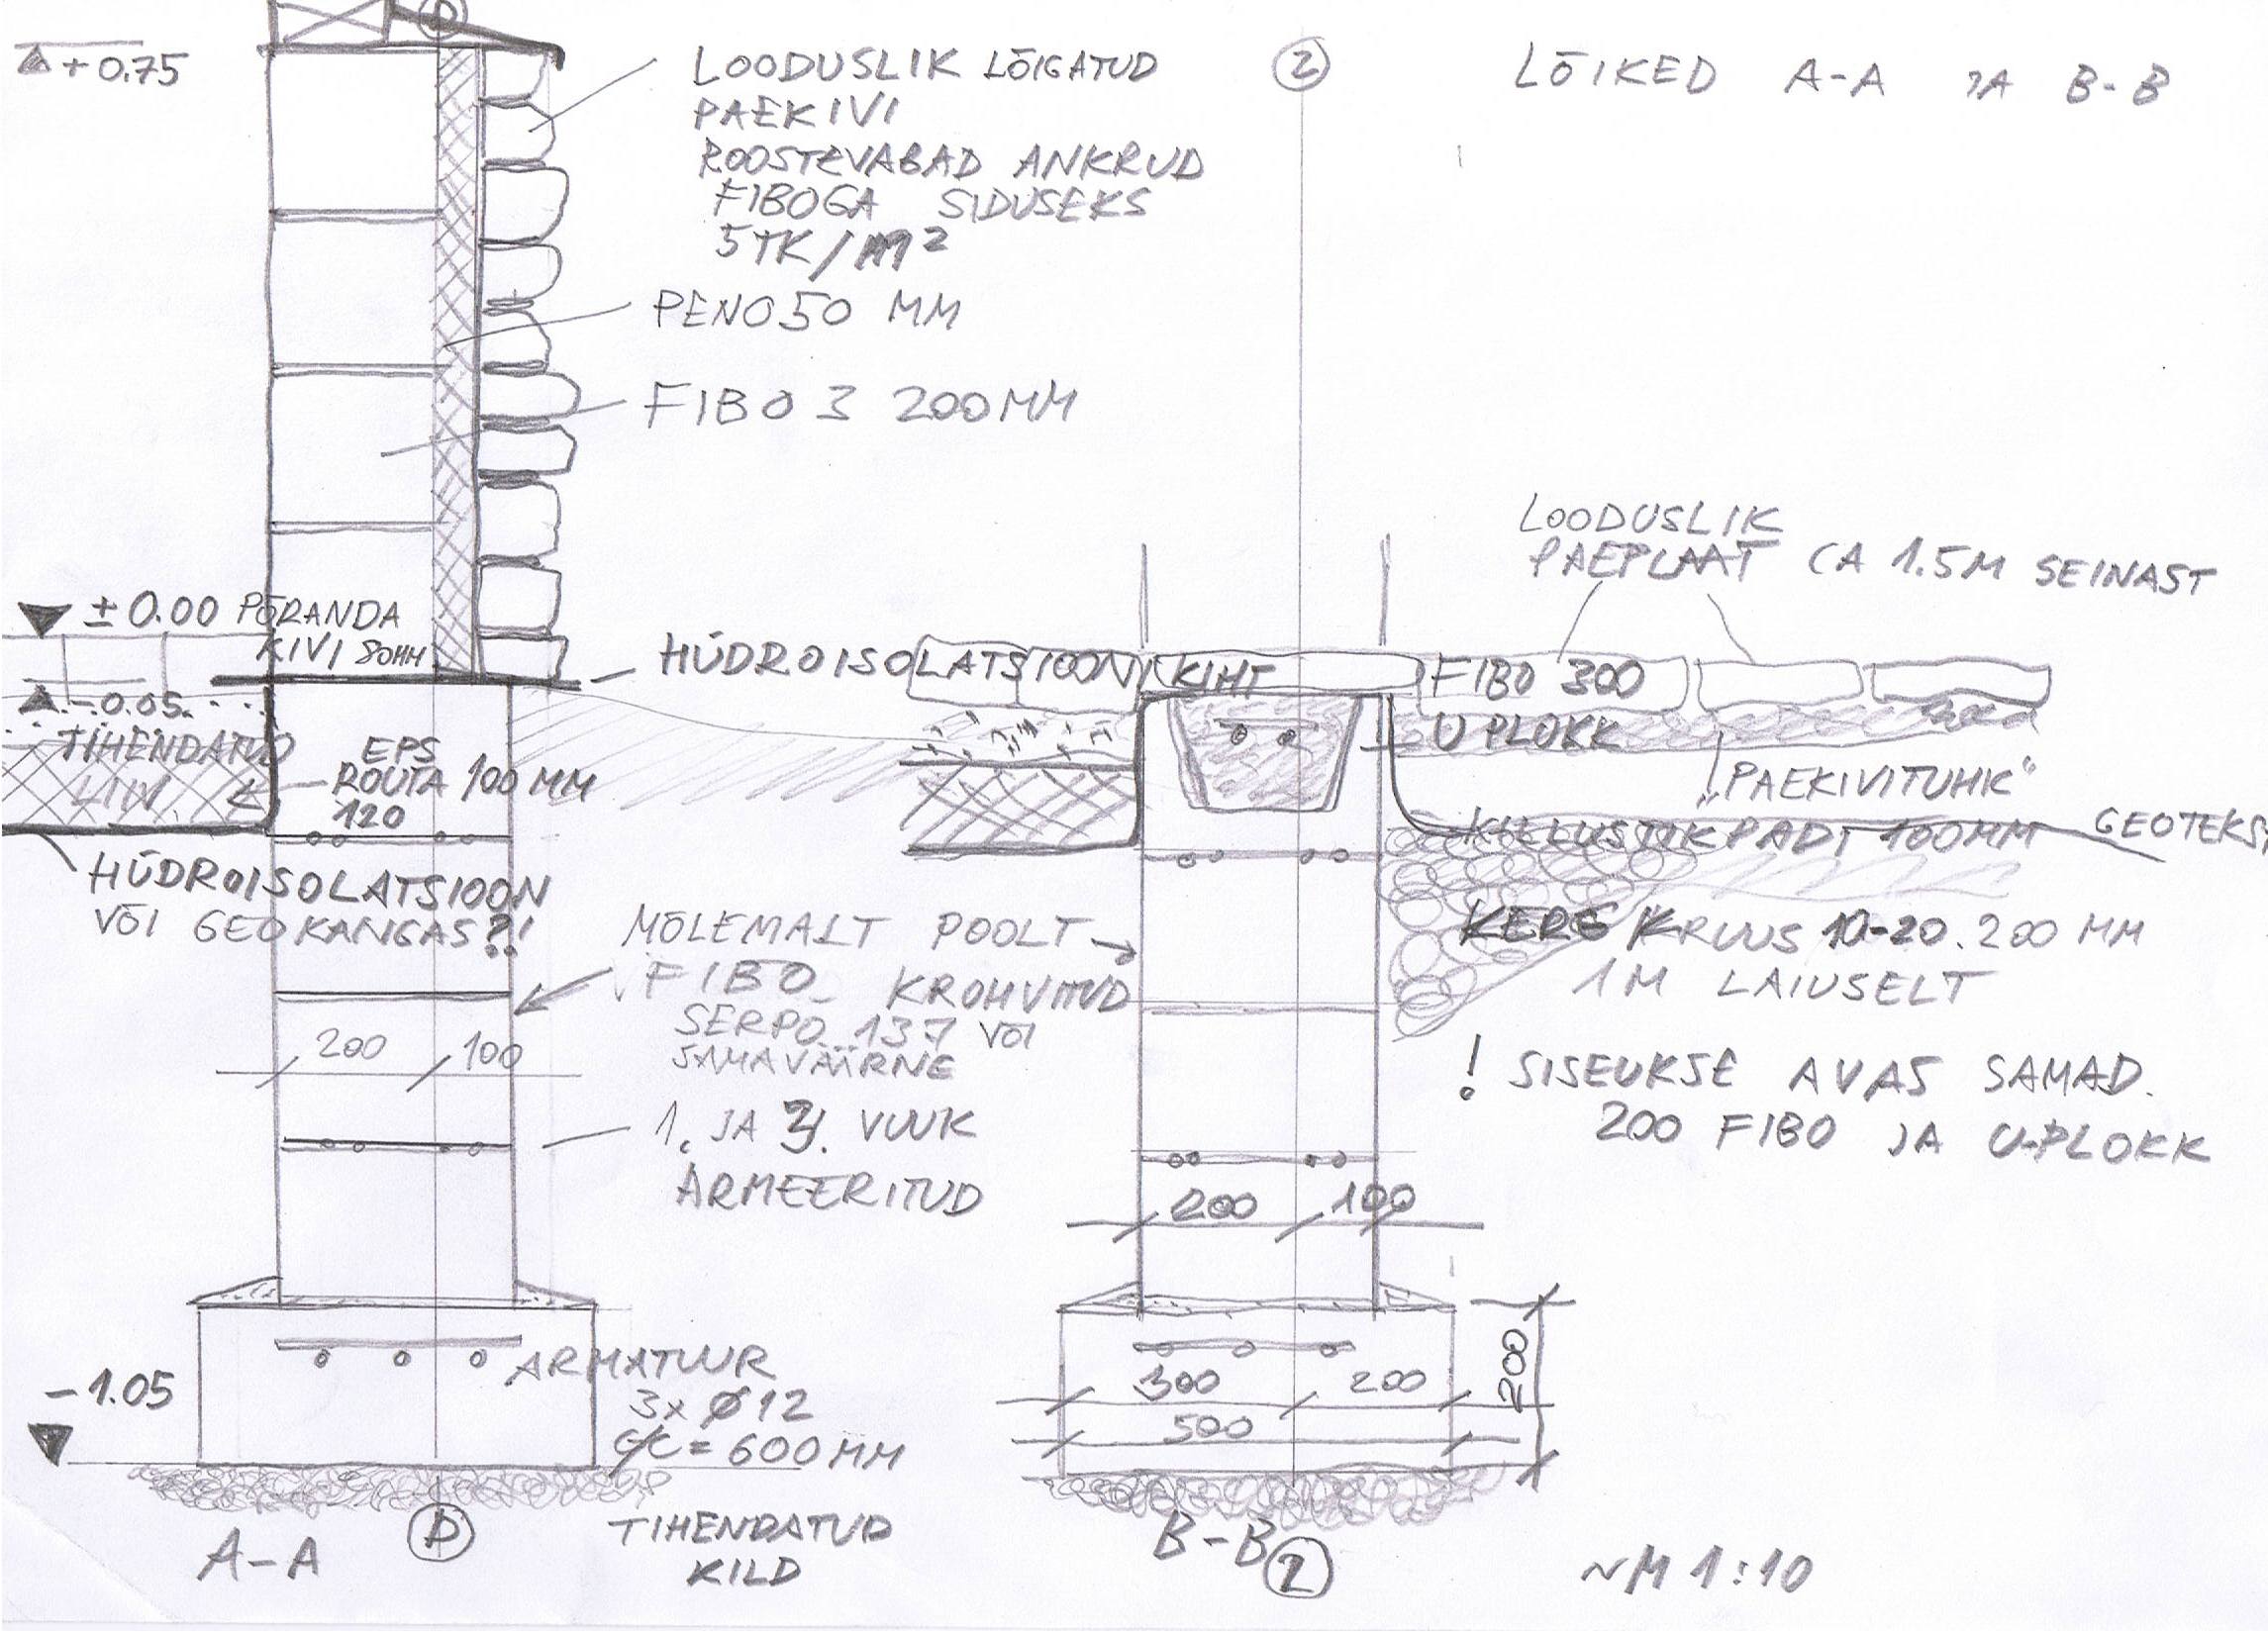 +0.75
LOODUSLIK LÕIGATUD
PAEKIVI
ROOSTEVABAD ANKRUD
FIBOGA SIDUSEKS
5TK/M²
PENO 50 MM
FIBO 3 200MM
2
LÕIKED A-A JA B-B
LOODUSLIK
PAEPLAAT CA 1.5M SEINAST
±0.00 PÕRANDA
KIVI 80MM
HÜDROISOLATSIOON KIHT
FIBO 300
U PLOKK
-0.05
TIHENDATUD
LIIV
EPS
ROUTA 100 MM
120
"PAEKIVITUHK"
KILLUSTIKPADI 100MM
GEOTEKS
HÜDROISOLATSIOON
VÕI GEOKANGAS?!
MÕLEMALT POOLT
FIBO KROHVITUD
SERPO 137 VÕI
SAMAVÄÄRNE
KERG KRUUS 10-20. 200 MM
1M LAIUSELT
200 100
1. JA 3. VUUK
ARMEERITUD
! SISEUKSE AVAS SAMAD.
200 FIBO JA U-PLOKK
200 100
-1.05
ARMATUUR
3x Ø12
c/c = 600MM
300 200
500
200
TIHENDATUD
KILD
A-A
D
B-B
2
~M 1:10